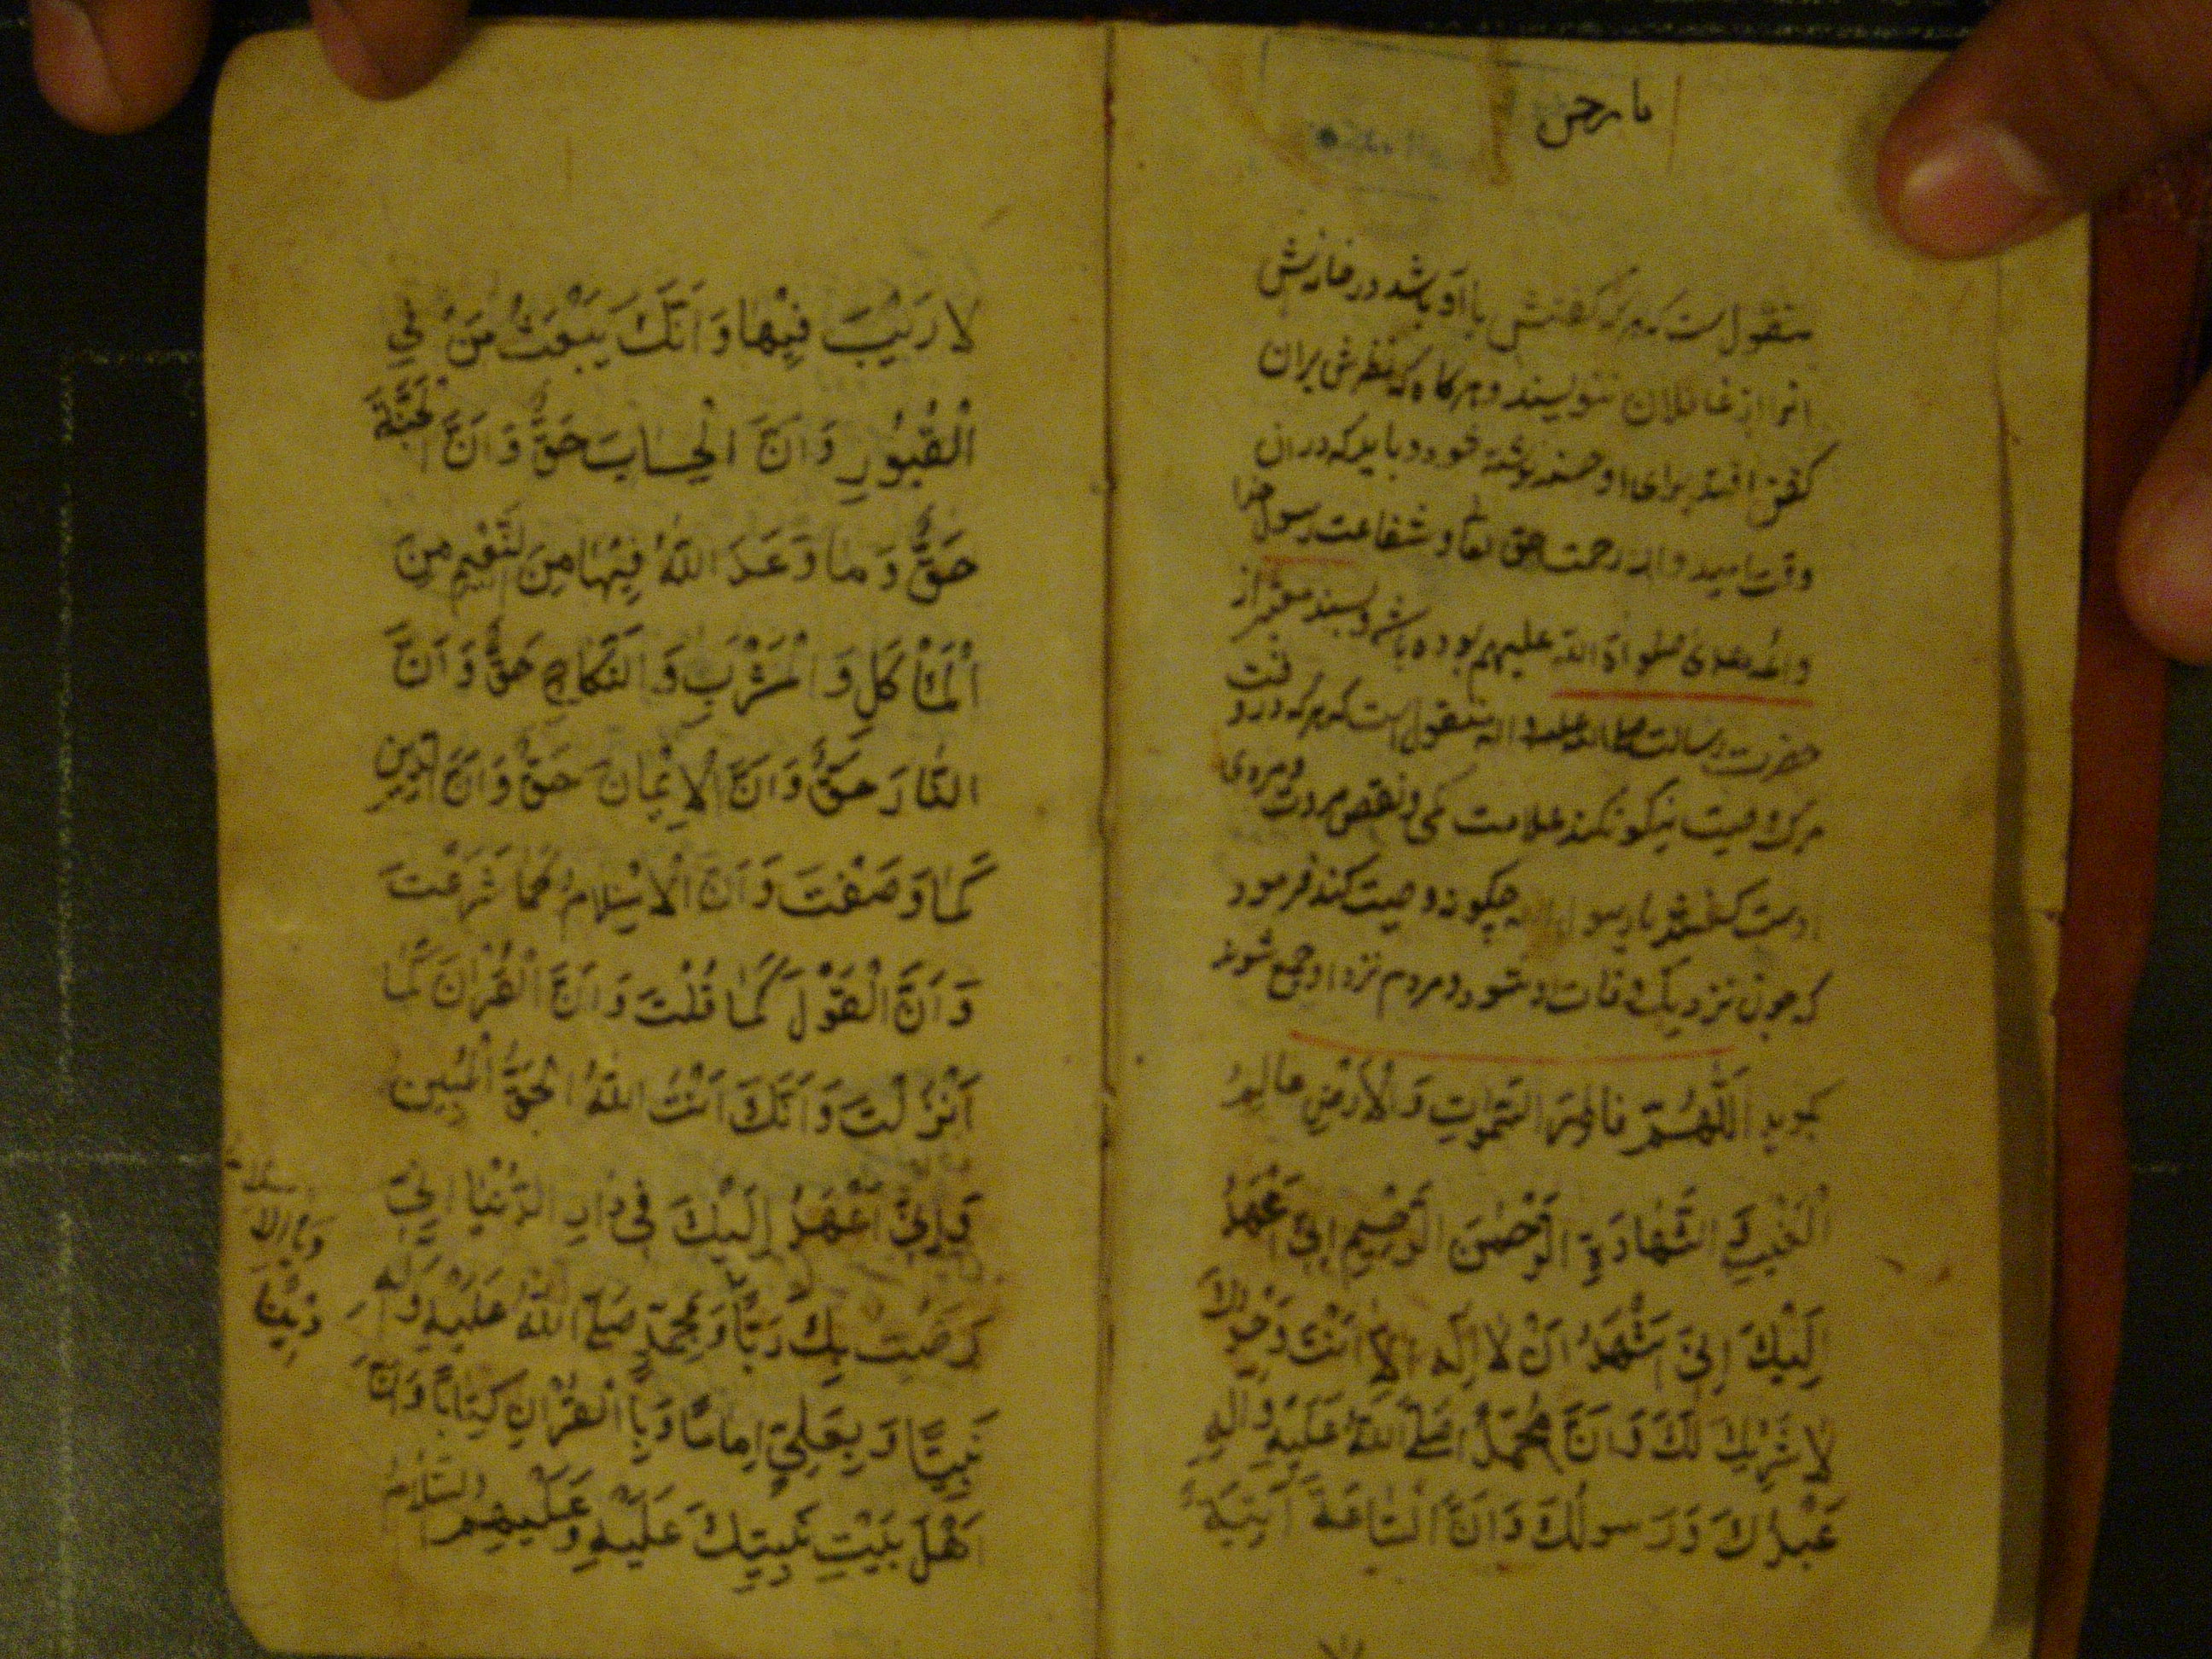 یا رحمن
منقول است که هر که کفنش با او باشد در خانه‌اش
او را از غافلان ننویسند و هرگاه که نظرش بران
کفن افتد برای او حسنه نوشته شود و باید که در آن
وقت امیدوار رحمت حق تعالی و شفاعت رسول خدا
و ائمه هدی صلواة الله علیهم بوده باشد و بسند معتبر از
حضرت رسالت صلی الله علیه واله منقول است که هر که در وقت
مرک وصیت نیکو نکند علامت کمی و نقص مروت و مردی
اوست گفتند یا رسول الله چگونه وصیت کند فرمود
که چون نزدیک وفات او شود و مردم نزد او جمع شوند
بگوید اَللّٰهُمَّ فاطِرَ السَّمٰواتِ وَ الْاَرْضِ عالِمَ
الْغَيْبِ وَ الشَّهادَةِ الرَّحْمٰنَ الرَّحيمِ اِنّي اَعْهَدُ
اِلَيْكَ اِنّي اَشْهَدُ اَنْ لا اِلٰهَ اِلاّ اَنْتَ وَحْدَكَ
لا شَرِيْكَ لَكَ وَ اَنَّ مُحَمَّداً صَلَّى اللّٰهُ عَلَيْهِ وَالِهِ
عَبْدُكَ وَ رَسولُكَ وَ اَنَّ السّاعَةَ اٰتِيَةٌ
لا رَيْبَ فِيْها وَ اَنَّكَ يَبْعَثُ مَنْ فِي
الْقُبُورِ وَ اَنَّ الْحِسابَ حَقٌّ وَ اَنَّ الْجَنَّةَ
حَقٌّ وَ ما وَعَدَ اللّٰهُ فِيْهَا مِنَ النَّعْيمِ مِنَ
الْمَأْكَلِ وَ الْمَشْرَبِ وَ النِّكاحِ حَقٌّ وَ اَنَّ
النّارَ حَقٌّ وَ اَنَّ الْاِيْمانَ حَقٌّ وَ اَنَّ الدّينَ
كَما وَصَفْتَ وَ اَنَّ الْاِسْلامَ كَما شَرَعْتَ
وَ اَنَّ الْقَوْلَ كَما قُلْتَ وَ اَنَّ الْقُرْانَ كَما
اَنْزَلْتَ وَ اَنَّكَ اَنْتَ اللّٰهُ الْحَقُّ الْمُبين
وَ اِنّي اَعْهَدُ اِلَيْكَ في دارِ الدُّنْيا اِنّي
رَضيتُ بِكَ رَبّاً وَ بِمُحَمَّدٍ صَلَّى اللّٰهُ عَلَيْهِ وَ اٰلِهِ
نَبِيّاً وَ بِعَلِيٍّ اِماماً وَ بِالْقُرْانِ كِتاباً وَ اَنَّ
اَهْلَ بَيْتِ نَبِيِّكَ عَلَيْهِ وَ عَلَيْهِمُ السَّلامُ
وَ بِالْاِسلامِ
دِيْناً